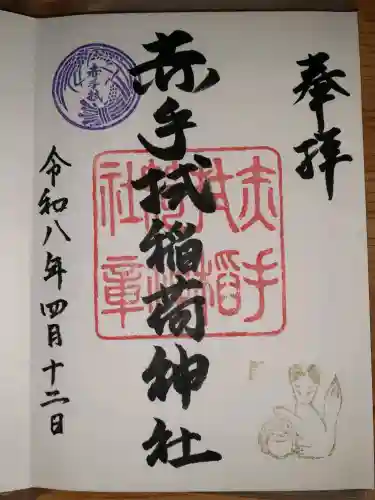 奉拝
赤手拭稲荷神社
赤手拭稲荷神社章
赤手拭
令和八年四月十二日